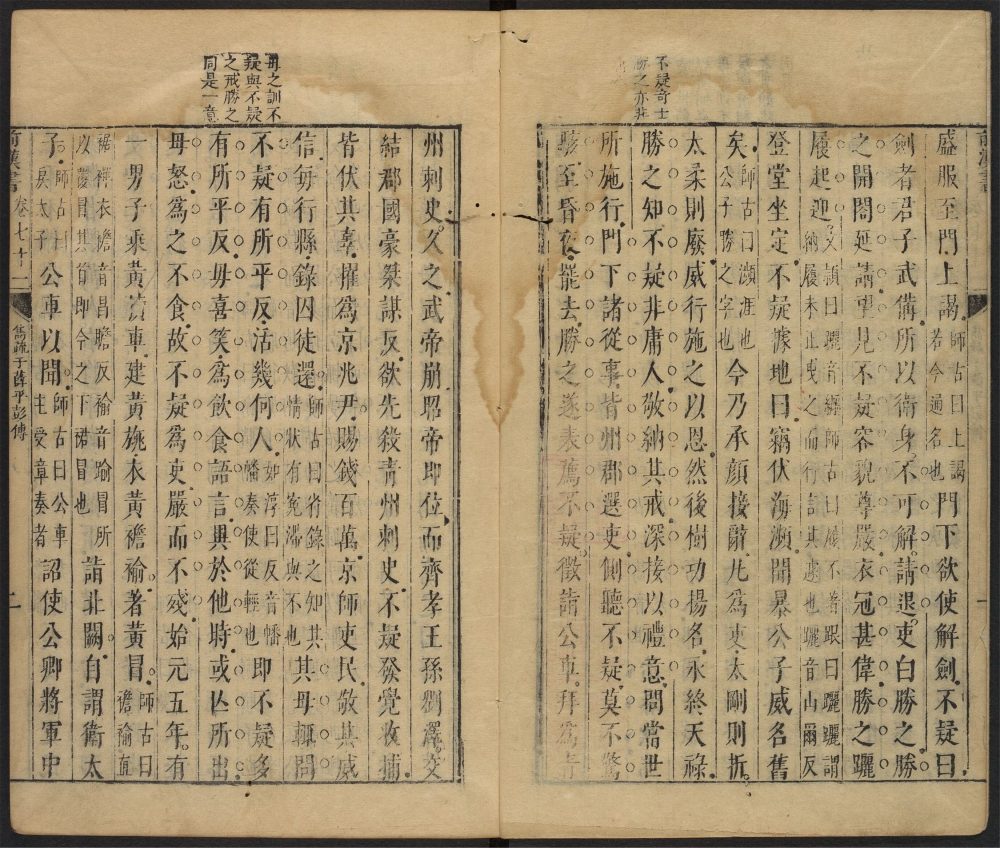 不疑奇士
勝之亦非
盛服至門上謁師古曰上謁若今通名也門下欲使解劍不疑曰
劍者君子武備所以衛身不可解請退吏白勝之勝
之開閤延請望見不疑容貌尊嚴衣冠甚偉勝之躧
履起迎文穎曰躧音纚師古曰履不著跟曰躧躧謂納履未正曳之而行言其遽也躧音山爾反
登堂坐定不疑據地曰竊伏海瀕聞暴公子威名舊
矣師古曰瀕涯也公子勝之字也今乃承顏接辭凡爲吏太剛則折
太柔則廢威行施之以恩然後樹功揚名永終天祿
勝之知不疑非庸人敬納其戒深接以禮意問當世
所施行門下諸從事皆州郡選吏側聽不疑莫不驚
駭至昏夜罷去勝之遂表薦不疑徵詣公車拜爲青
母之訓不
疑與不疑
之戒勝之
同是一意
州刺史久之武帝崩昭帝即位而齊孝王孫劉澤交
結郡國豪桀謀反欲先殺青州刺史不疑發覺收捕
皆伏其辜擢爲京兆尹賜錢百萬京師吏民敬其威
信每行縣錄囚徒還師古曰省錄之知其情狀有冤滯與不也其母輒問
不疑有所平反活幾何人如淳曰反音幡幡奏使從輕也即不疑多
有所平反母喜笑爲飲食語言異於他時或亾所出
母怒爲之不食故不疑爲吏嚴而不殘始元五年有
一男子乘黃犢車建黃旐衣黃襜褕著黃冒師古曰襜褕直
裾襌衣襜音昌瞻反褕音踰冒所以覆冒其首即今之下裙冒也詣北闕自謂衛太
子師古曰戾太子公車以聞師古曰公車主受章奏者詔使公卿將軍中
前漢書 卷七十一 雋疏于薛平彭傳 二